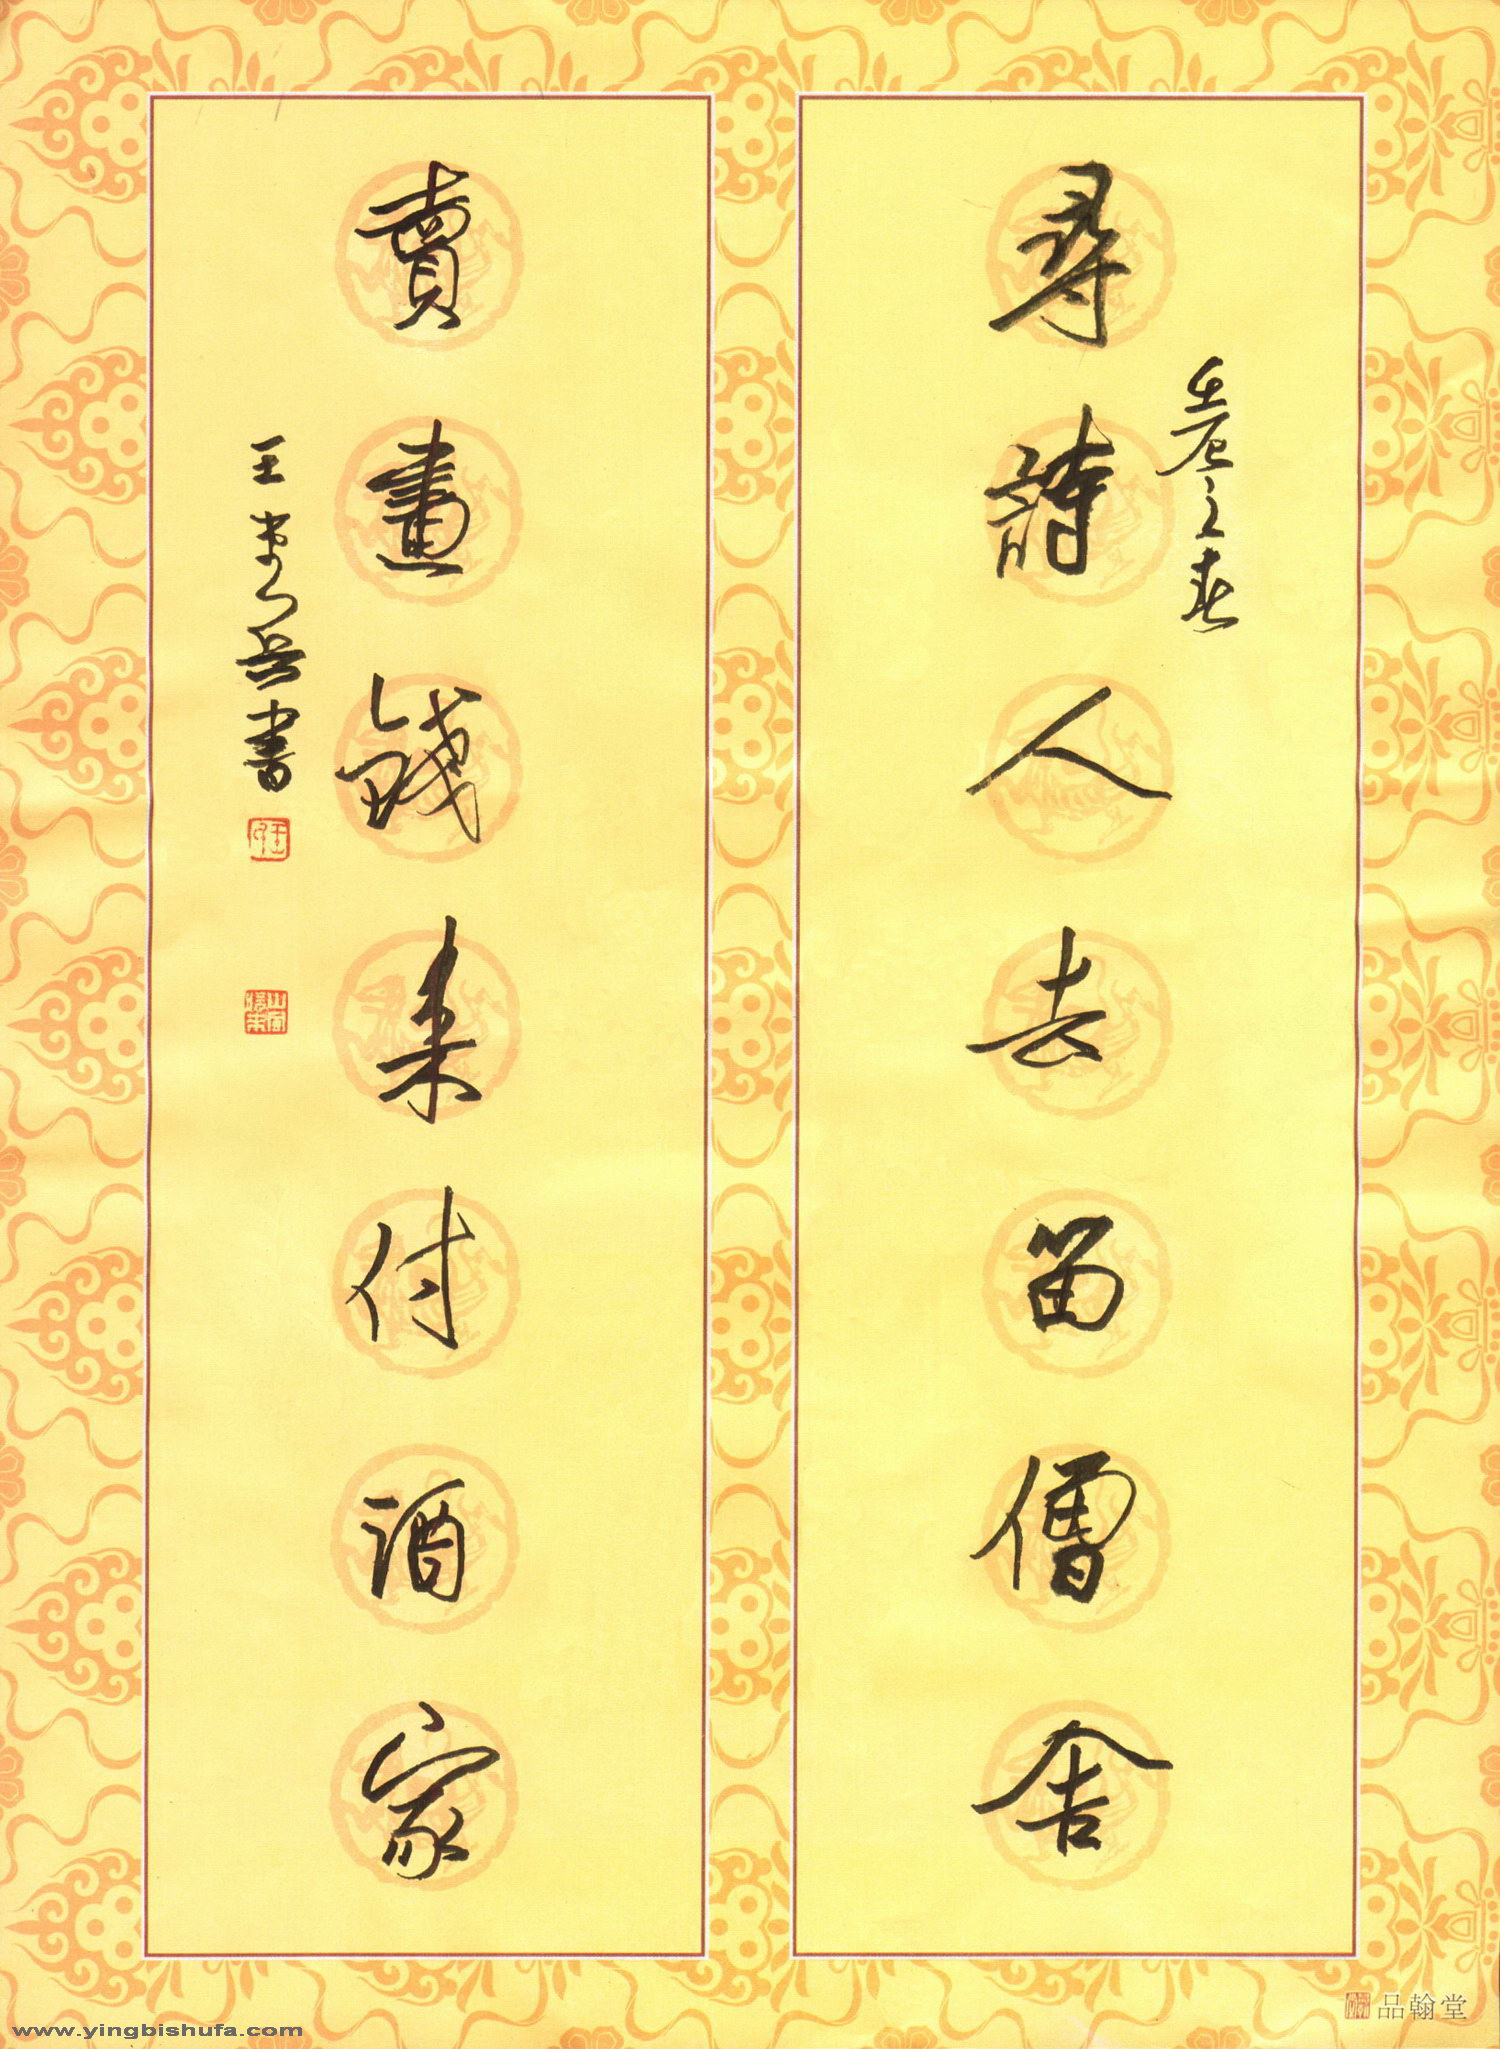 尋詩人去留僧舍
壬辰之春
賣畫錢來付酒家
王
岳書
品翰堂
www.yingbishufa.com